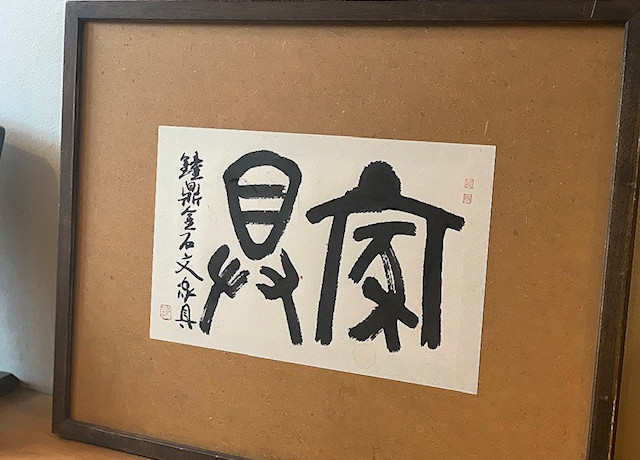 家具
鐘鼎金石文家具